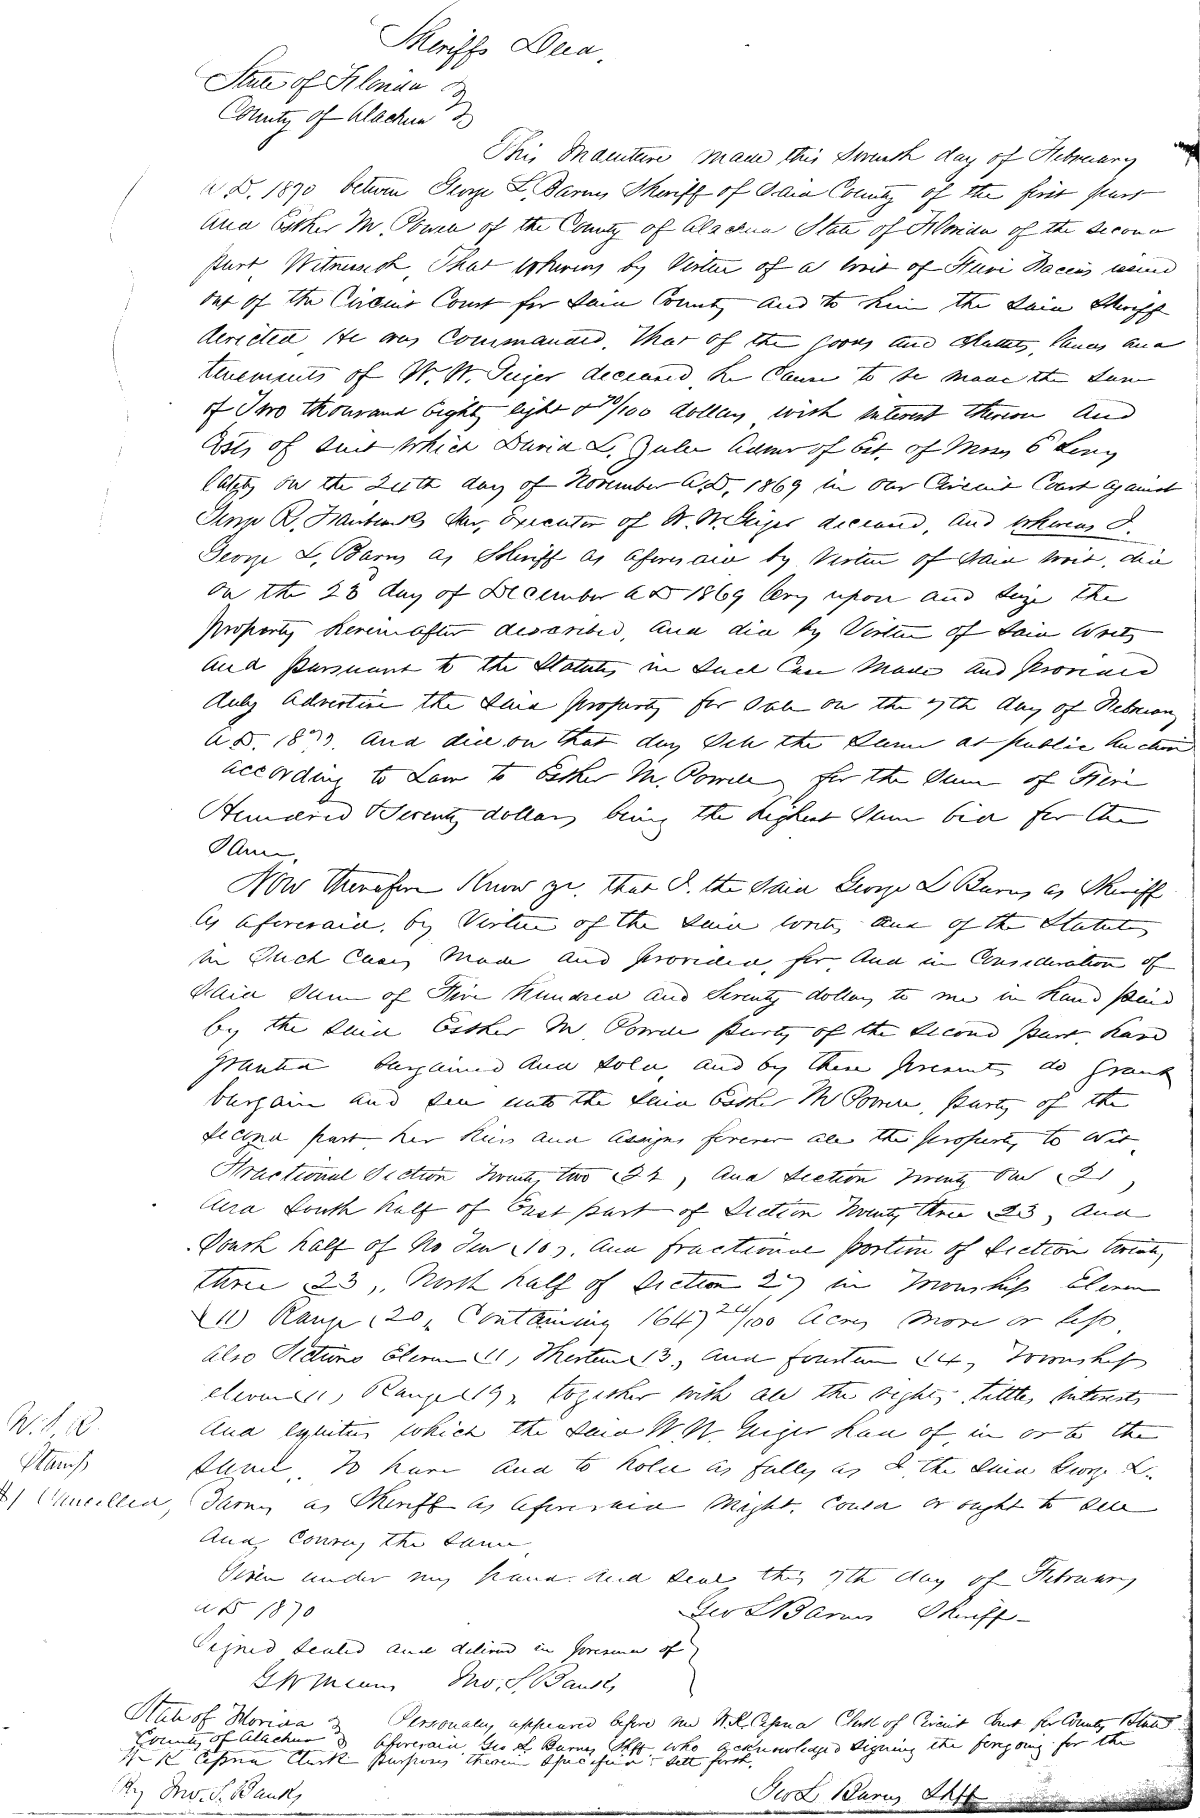 Sheriffs Deed.
State of Florida
County of Alachua
This Indenture made this Seventh day of February
A.D. 1870 between George L. Barnes Sheriff of Said County of the first part
and Esther M. Powell of the County of Alachua State of Florida of the second
part, Witnesseth, That whereas by Virtue of a writ of Fieri Facias issued
out of the Circuit Court for Said County and to him the Said Sheriff
directed He was Commanded. that of the goods and chattels, lands and
tenements of W. W. Geiger deceased he Cause to be made the Sum
of Two thousand Eighty eight & 70/100 dollars with interest thereon and
Costs of Suit which David L. Yulee Admr of Est. of Moses E Levy
lately on the 24th day of November A.D. 1869 in our Circuit Court against
George R. Fairbanks Executor of W. W. Geiger deceased, and whereas I.
George L. Barnes as Sheriff as aforesaid by Virtue of Said writ. did
on the 23d day of December A D 1869 levy upon and Seize the
property hereinafter described, and did by Virtue of Said Writ
and pursuant to the Statutes in Such Case Made and provided
duly advertise the Said property for Sale on the 7th day of February
A.D. 1870. and did on that day Sell the Same at public Auction
according to Law to Esther M. Powell for the Sum of Five
Hundred & Seventy dollars being the highest Sum bid for the
Same,
Now therefore Know ye. that I. the Said George L Barnes as Sheriff
as aforesaid. by Virtue of the Said writ, and of the Statutes
in Such Cases Made and provided, for, and in Consideration of
Said Sum of Five hundred and Seventy dollars to me in hand paid
by the Said Esther M. Powell party of the second part, have
granted bargained and Sold, and by these presents do grant
bargain and Sell unto the Said Esther M Powell, party of the
second part, her heirs and assigns forever all the property to wit.
Fractional Section Twenty two (22), and Section Twenty One (21),
and South half of East part of Section Twenty three (23), and
South half of No Ten (10), and fractional portion of Section twenty
three (23), North half of Section 27 in Township Eleven
(11) Range (20), Containing 1647 24/100 Acres More or less,
also Sections Eleven (11), Thirteen (13), and fourteen (14), Township
eleven (11), Range (19), together with all the rights, tittles, interests
and equities which the Said W. W. Geiger had of, in or to the
Same. To have and to hold as fully as I, the Said George L.
Barnes as Sheriff as aforesaid Might, Could or ought to sell
and, Convey the same.
Given under my hand. and Seal, this 7th day of February
A D 1870
Geo L Barnes Sheriff
Signed Sealed and delivered in presence of
G W Means Jno. S. Banks
Stamps
$1 Cancelled,
State of Florida
County of Alachua
Personally appeared before me W. K. Cessna Clerk of Circuit Court for County & State
aforesaid Geo L Barnes Shff who acknowledged Signing the foregoing for the
purposes therein Specified & sett forth.
W K Cessna Clerk
By Jno. S. Banks
Geo L Barnes Shff